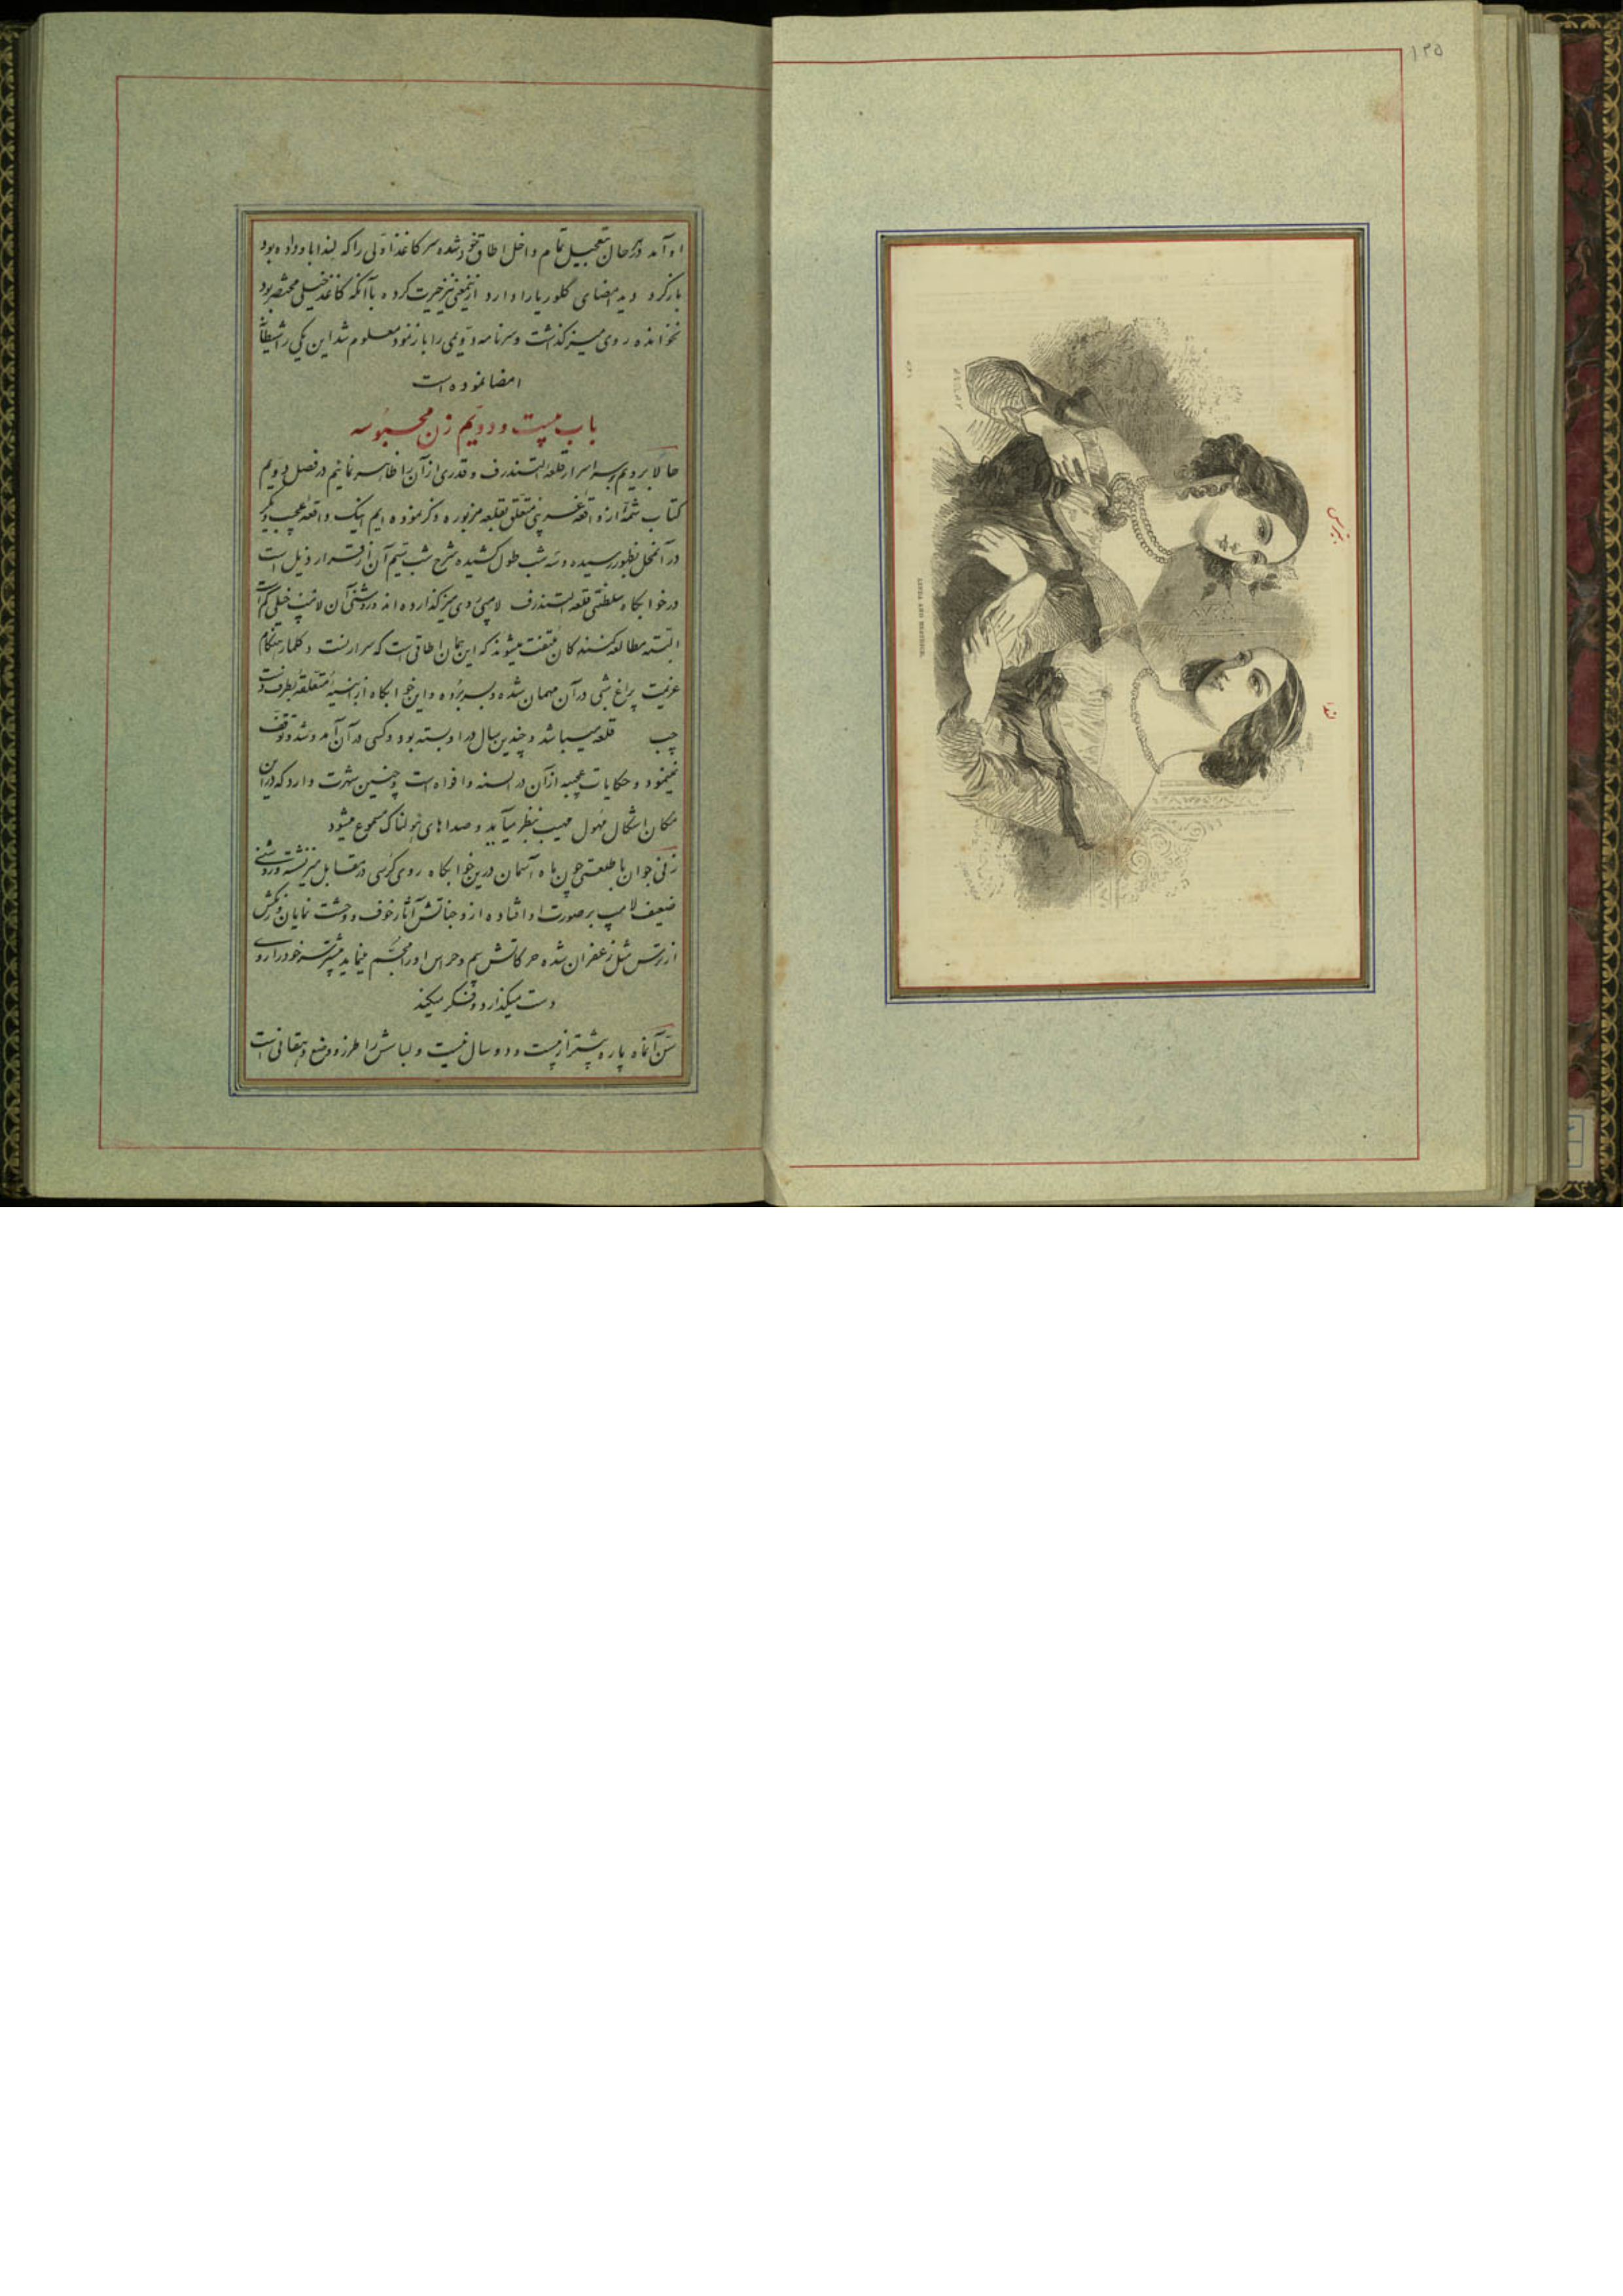 ۱۲۵
او آمد در حال بتعجیل تمام داخل اطاق خود شده سر کاغذ اولی را که لندا باو داده بود
باز کرد دید امضای کلوریا را دارد ازینمعنی نیز حیرت کرده با آنکه کاغذ خیلی مختصر بود
نخوانده روی میز گذاشت و سرنامه دویمی را باز نمود معلوم شد این یکی را شیطان
امضا نموده است
باب بیست و دویم زن محبوسه
حالا برویم بر سر اسرار قلعه التندرف و قدری از آن را ظاهر نمائیم در فصل دویم
کتاب شمه از واقعه غریبی متعلق بقلعه مزبوره ذکر نموده ایم اینک واقعه عجیب دیگر
در آنمحل بظهور رسیده و سه شب طول کشیده شرح شب سیم آن از قرار ذیل است
در خوابگاه سلطنتی قلعه التندرف لامپی روی میز گذارده اند و روشنی آن لامپ خیلی کم است
البته مطالعه کنندگان ملتفت میشوند که این همان اطاقی است که سرارنست دکلمار هنگام
عزیمت پراغ شبی در آن مهمان شده و بسر برده و این خوابگاه از ابنیه متعلقه بطرف دست
چپ قلعه میباشد و چندین سال در او بسته بود و کسی در آن آمد و شد و توقف
نمینمود و حکایات عجیبه از آن در السنه و افواه است و چنین شهرت دارد که در این
مکان اشکال مهول مهیب بنظر میآید و صداهای هولناک مسموع میشود
زنی جوان با طلعتی چون ماه آسمان درین خوابگاه روی کرسی در مقابل میز نشسته و روشنی
ضعیف لامپ بر صورت او افتاده از وجناتش آثار خوف و وحشت نمایان و رنگش
از ترس مثل زعفران شده حرکاتش بیم و هراس او را مجسم مینماید بیشتر سر خود را روی
دست میگذارد و فکر میکند
سن آنماه پاره بیشتر از بیست و دو سال نیست و لباسش را طرز و وضع دهقانی است